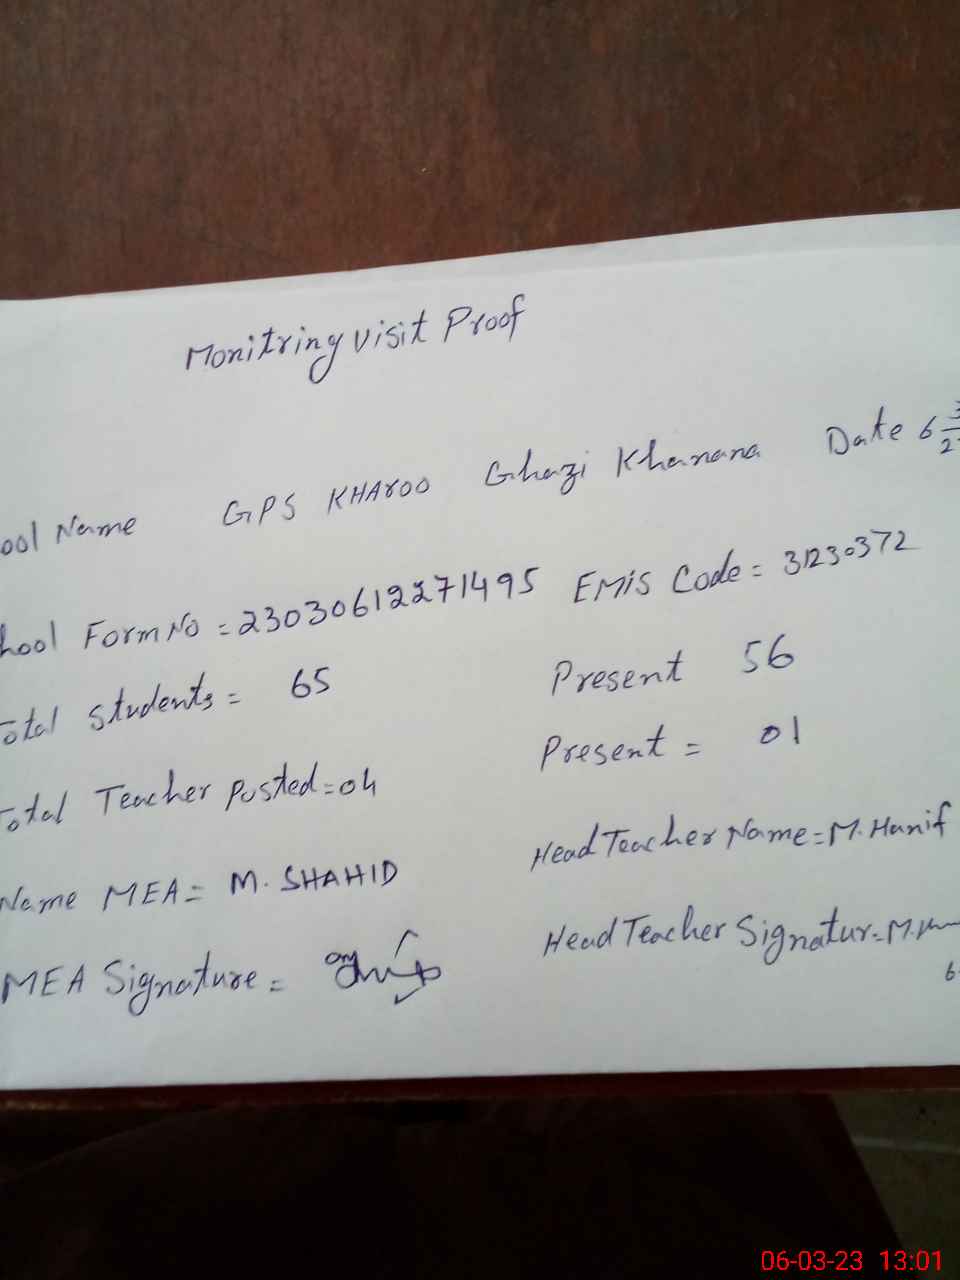 Monitring visit Proof
ool Name GPS KHAroo Ghazi Khanana Date 6
hool Form No = 23030612271495 EMIS Code = 31230372
otal students = 65 Present 56
Total Teacher Posted = 04 Present = 01
Name MEA = M. SHAHID Head Teacher Name = M. Hanif
MEA Signature = Head Teacher Signatur = M.
06-03-23 13:01